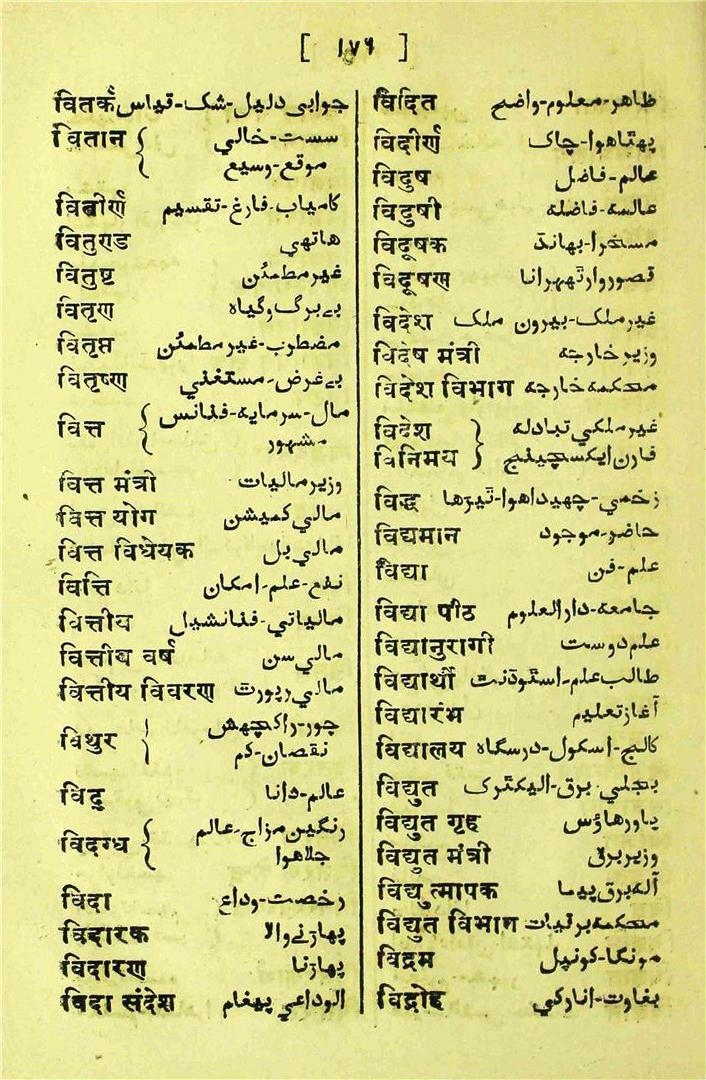 [ ۱۷۶ ]
वितर्क جوابی دلیل-شک-قیاس
वितान { سست-خالی
موقع-وسیع
वितीर्ण کامیاب-فارغ-تقسیم
वितुण्ड هاتهی
वितुष्ट غیر مطمئن
वितृण بےبرگ وگیاه
वितृप्त مضطرب-غیر مطمئن
वितृष्ण بےغرض-مستغنی
वित्त { مال-سرمایه-فنانس
مشهور
वित्त मंत्री وزیر مالیات
वित्त योग مالی کمیشن
वित्त विधेयक مالی بل
वित्ति نفع-علم-امکان
वित्तीय مالیاتی-فنانشیل
वित्तीय वर्ष مالی سن
वित्तीय विवरण مالی رپورٹ
विथुर { چور-راکچهش
نقصان-کم
विदु عالم-دانا
विदग्ध { رنگین مزاج-عالم
جلاهوا
विदा رخصت-وداع
विदारक پهاڑنے والا
विदारण پهاڑنا
विदा संदेश الوداعی پیغام
विदित ظاهر-معلوم-واضح
विदीर्ण پهٹاهوا-چاک
विदुष عالم-فاضل
विदुषी عالمه-فاضله
विदूषक مسخرا-بهانڈ
विदूषण قصوروار ٹهہرانا
विदेश غیر ملک-بیرون ملک
विदेष मंत्री وزیر خارجه
विदेश विभाग محکمه خارجه
विदेश } غیر ملکی تبادله
विनिमय فارن ایکسچینج
विद्ध زخمی-چهیدا هوا-ٹیڑها
विद्यमान حاضر-موجود
विद्या علم-فن
विद्या पीठ جامعه-دارالعلوم
विद्यानुरागी علم دوست
विद्यार्थी طالب علم-اسٹوڈنٹ
विद्यारंभ آغاز تعلیم
विद्यालय کالج-اسکول-درسگاه
विद्युत بجلی برق-الیکٹرک
विद्युत गृह پاورهاؤس
विद्युत मंत्री وزیر برق
विद्युत्मापक آله برق پیما
विद्युत विभाग محکمه برقیات
विद्रम مونگا-کونپل
विद्रोह بغاوت-انارکی